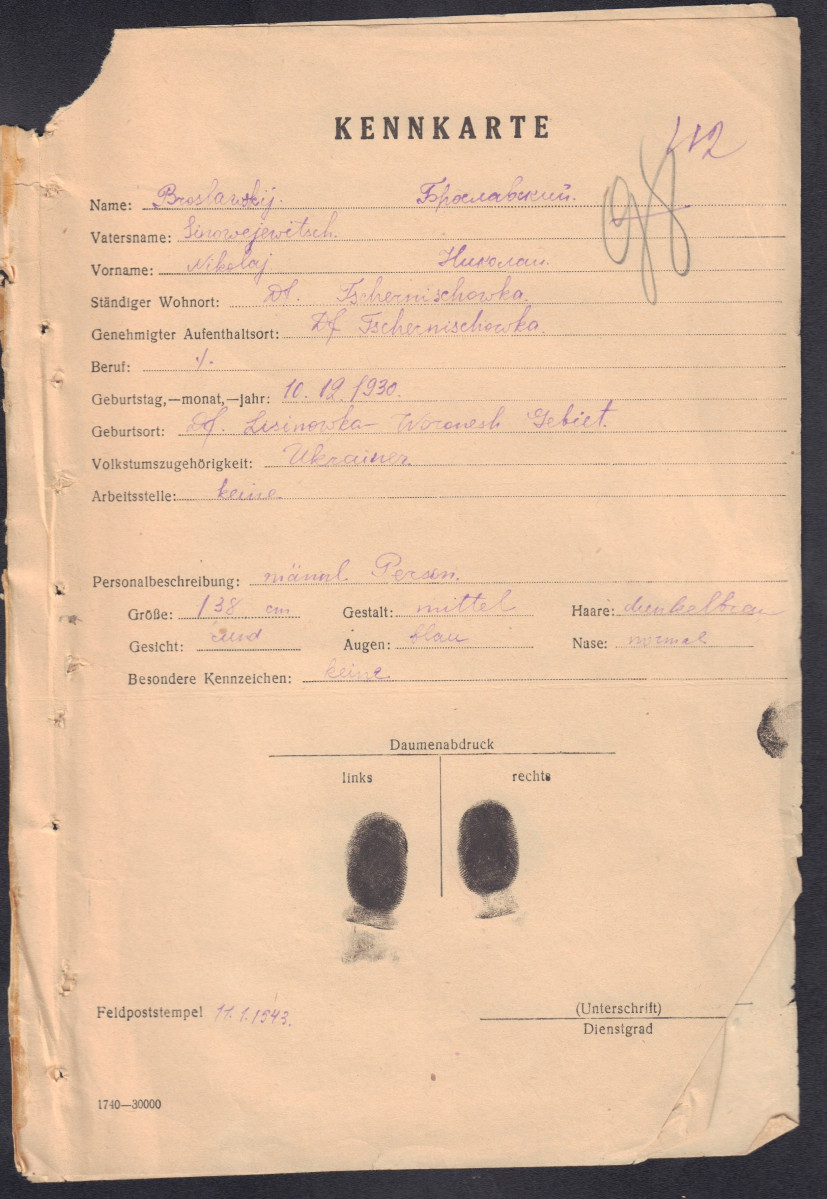 KENNKARTE
112
98
Name: Broslawskij. Брославский.
Vatersname: Sinowejewitsch.
Vorname: Nikolaj Николай.
Ständiger Wohnort: Df. Tschernischowka.
Genehmigter Aufenthaltsort: Df Tschernischowka.
Beruf: ·/.
Geburtstag,—monat,—jahr: 10. 12. 1930.
Geburtsort: Df. Lisinowka - Woronesh Gebiet.
Volkstumszugehörigkeit: Ukrainer.
Arbeitsstelle: keine
Personalbeschreibung: männl. Person.
Größe: 138 cm Gestalt: mittel Haare: dunkelbrau
Gesicht: rund Augen: blau Nase: normal
Besondere Kennzeichen: keine
Daumenabdruck
links rechts
Feldpoststempel 11.1.1943. (Unterschrift)
Dienstgrad
1740—30000